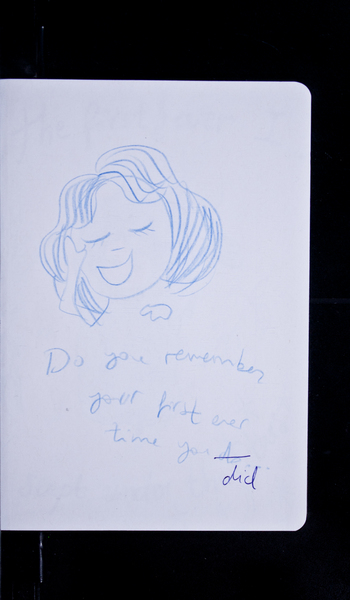 Do you remember,
your first ever
time you
did